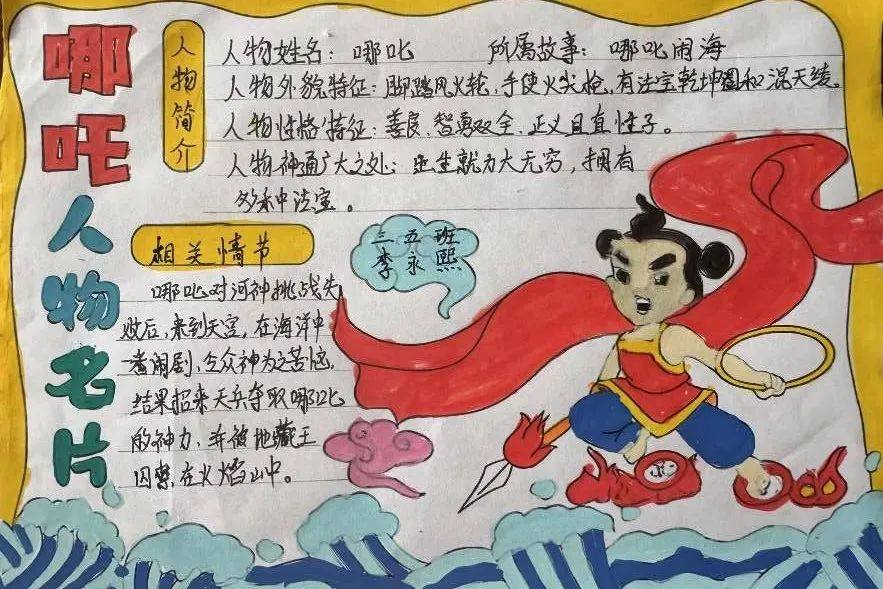 哪吒人物名片
人物简介
人物姓名：哪叱 所属故事：哪叱闹海
人物外貌特征：脚踏风火轮，手使火尖枪，有法宝乾坤圈和混天绫。
人物性格特征：善良、智勇双全、正义且直性子。
人物神通广大之处：出生就力大无穷，拥有
多种法宝。
相关情节
三五班
李永熙
哪叱对河神挑战失
败后，来到天宫，在海洋中
闹剧，令众神为之苦恼，
结果招来天兵夺取哪叱
的神力，并被地藏王
囚禁在火焰山中。